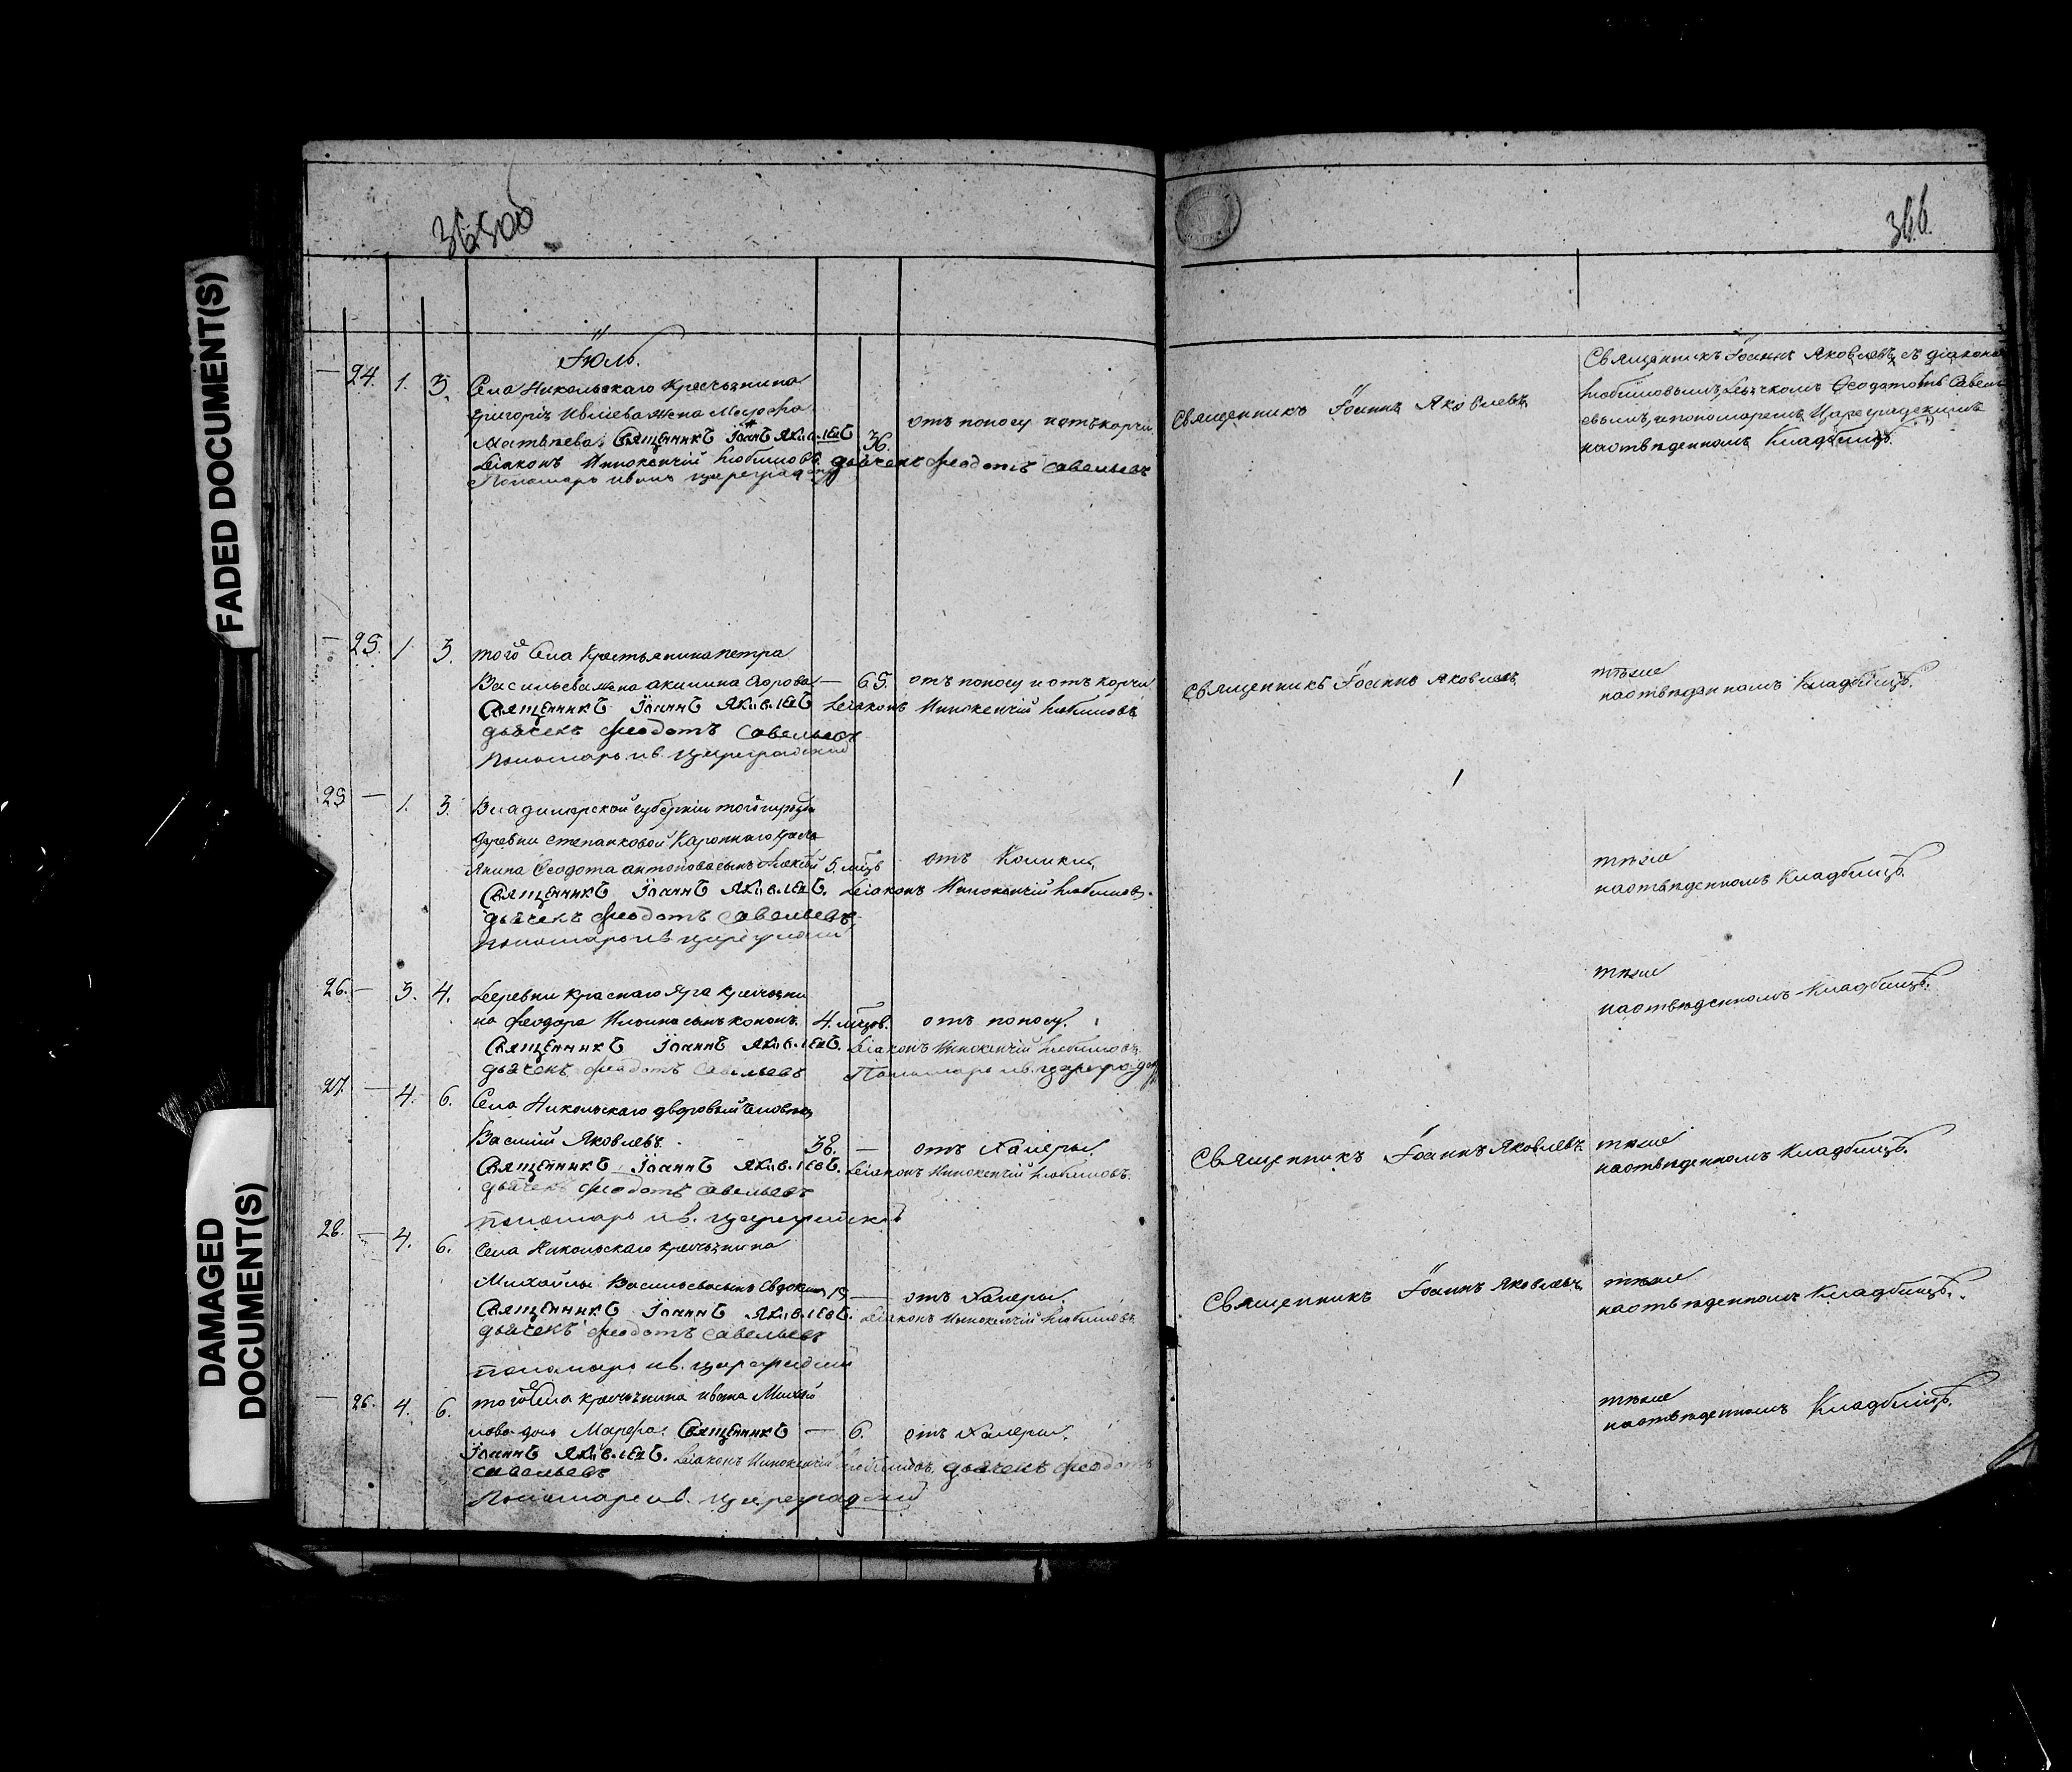 365об
366.
Іюль.
24. 1. 3. Села Никольскаго крестьянина
Григорія Ивлиева жена Марфа
Матвѣева. Священникъ Іоаннъ Яковлевъ 36. отъ поносу и отъ корчи
Діаконъ Иннокентій Любимовъ. дьячекъ Феодотъ Савельевъ
Пономарь Иванъ Цареградскій
Священникъ Іоаннъ Яковлевъ
Священникъ Іоаннъ Яковлевъ съ діакономъ
Любимовымъ, дьячкомъ Ѳеодотомъ Савель
евымъ, и пономаремъ Цареградскимъ
на отведенномъ кладбищѣ.
25. 1. 3. того села крестьянина Петра
Васильева жена Акилина — 65. отъ поносу и отъ корчи
Священникъ Іоаннъ Яковлевъ Діаконъ Иннокентій Любимовъ
дьячекъ Феодотъ Савельевъ
Пономарь Ив. Цареградскій
Священникъ Іоаннъ Яковлевъ
тѣже
на отведенномъ кладбищѣ.
25 — 1. 3. Владимерской губерніи того
деревни Степанковой
янина Ѳеодота Антонова сынъ 5. мцъ отъ Колики
Священникъ Іоаннъ Яковлевъ. Діаконъ Иннокентій Любимовъ.
дьячекъ Феодотъ Савельевъ
Пономарь Ив Цареградскій
тѣже
на отведенномъ кладбищѣ.
26. — 3. 4. Деревни Краснаго Яра крестьяни
на Феодора Ильина сынъ Кононъ. 4. мцов. отъ поносу.
Священникъ Іоаннъ Яковлевъ. Діаконъ Иннокентій Любимовъ.
дьячекъ Феодотъ Савельевъ Пономарь Ив. Цареградскій
тѣже
на отведенномъ кладбищѣ.
27. — 4. 6. Села Никольскаго дворовый человѣкъ
Василій Яковлевъ. 38. — отъ Халеры.
Священникъ Іоаннъ Яковлевъ. Діаконъ Иннокентій Любимовъ.
дьячекъ Феодотъ Савельевъ
пономарь Ив. Цареградскій
Священникъ Іоаннъ Яковлевъ.
тѣже
на отведенномъ кладбищѣ.
28. — 4. 6. Села Никольскаго крестьянина
Михайлы Васильева сынъ Евдокимъ 19 — отъ Халеры.
Священникъ Іоаннъ Яковлевъ. Діаконъ Иннокентій Любимовъ.
дьячекъ Феодотъ Савельевъ
пономарь Ив. Цареградскій
Священникъ Іоаннъ Яковлевъ
тѣже
на отведенномъ кладбищѣ.
— 26. 4. 6. того села крестьянина Ивана Михай
лова дочь Марфа. Священникъ — 6. отъ Халеры.
Іоаннъ Яковлевъ. Діаконъ Иннокентій Любимовъ. дьячекъ Феодотъ
Савельевъ
Пономарь Ив. Цареградскій
тѣже
на отведенномъ кладбищѣ.
FADED DOCUMENT(S)
DAMAGED
DOCUMENT(S)